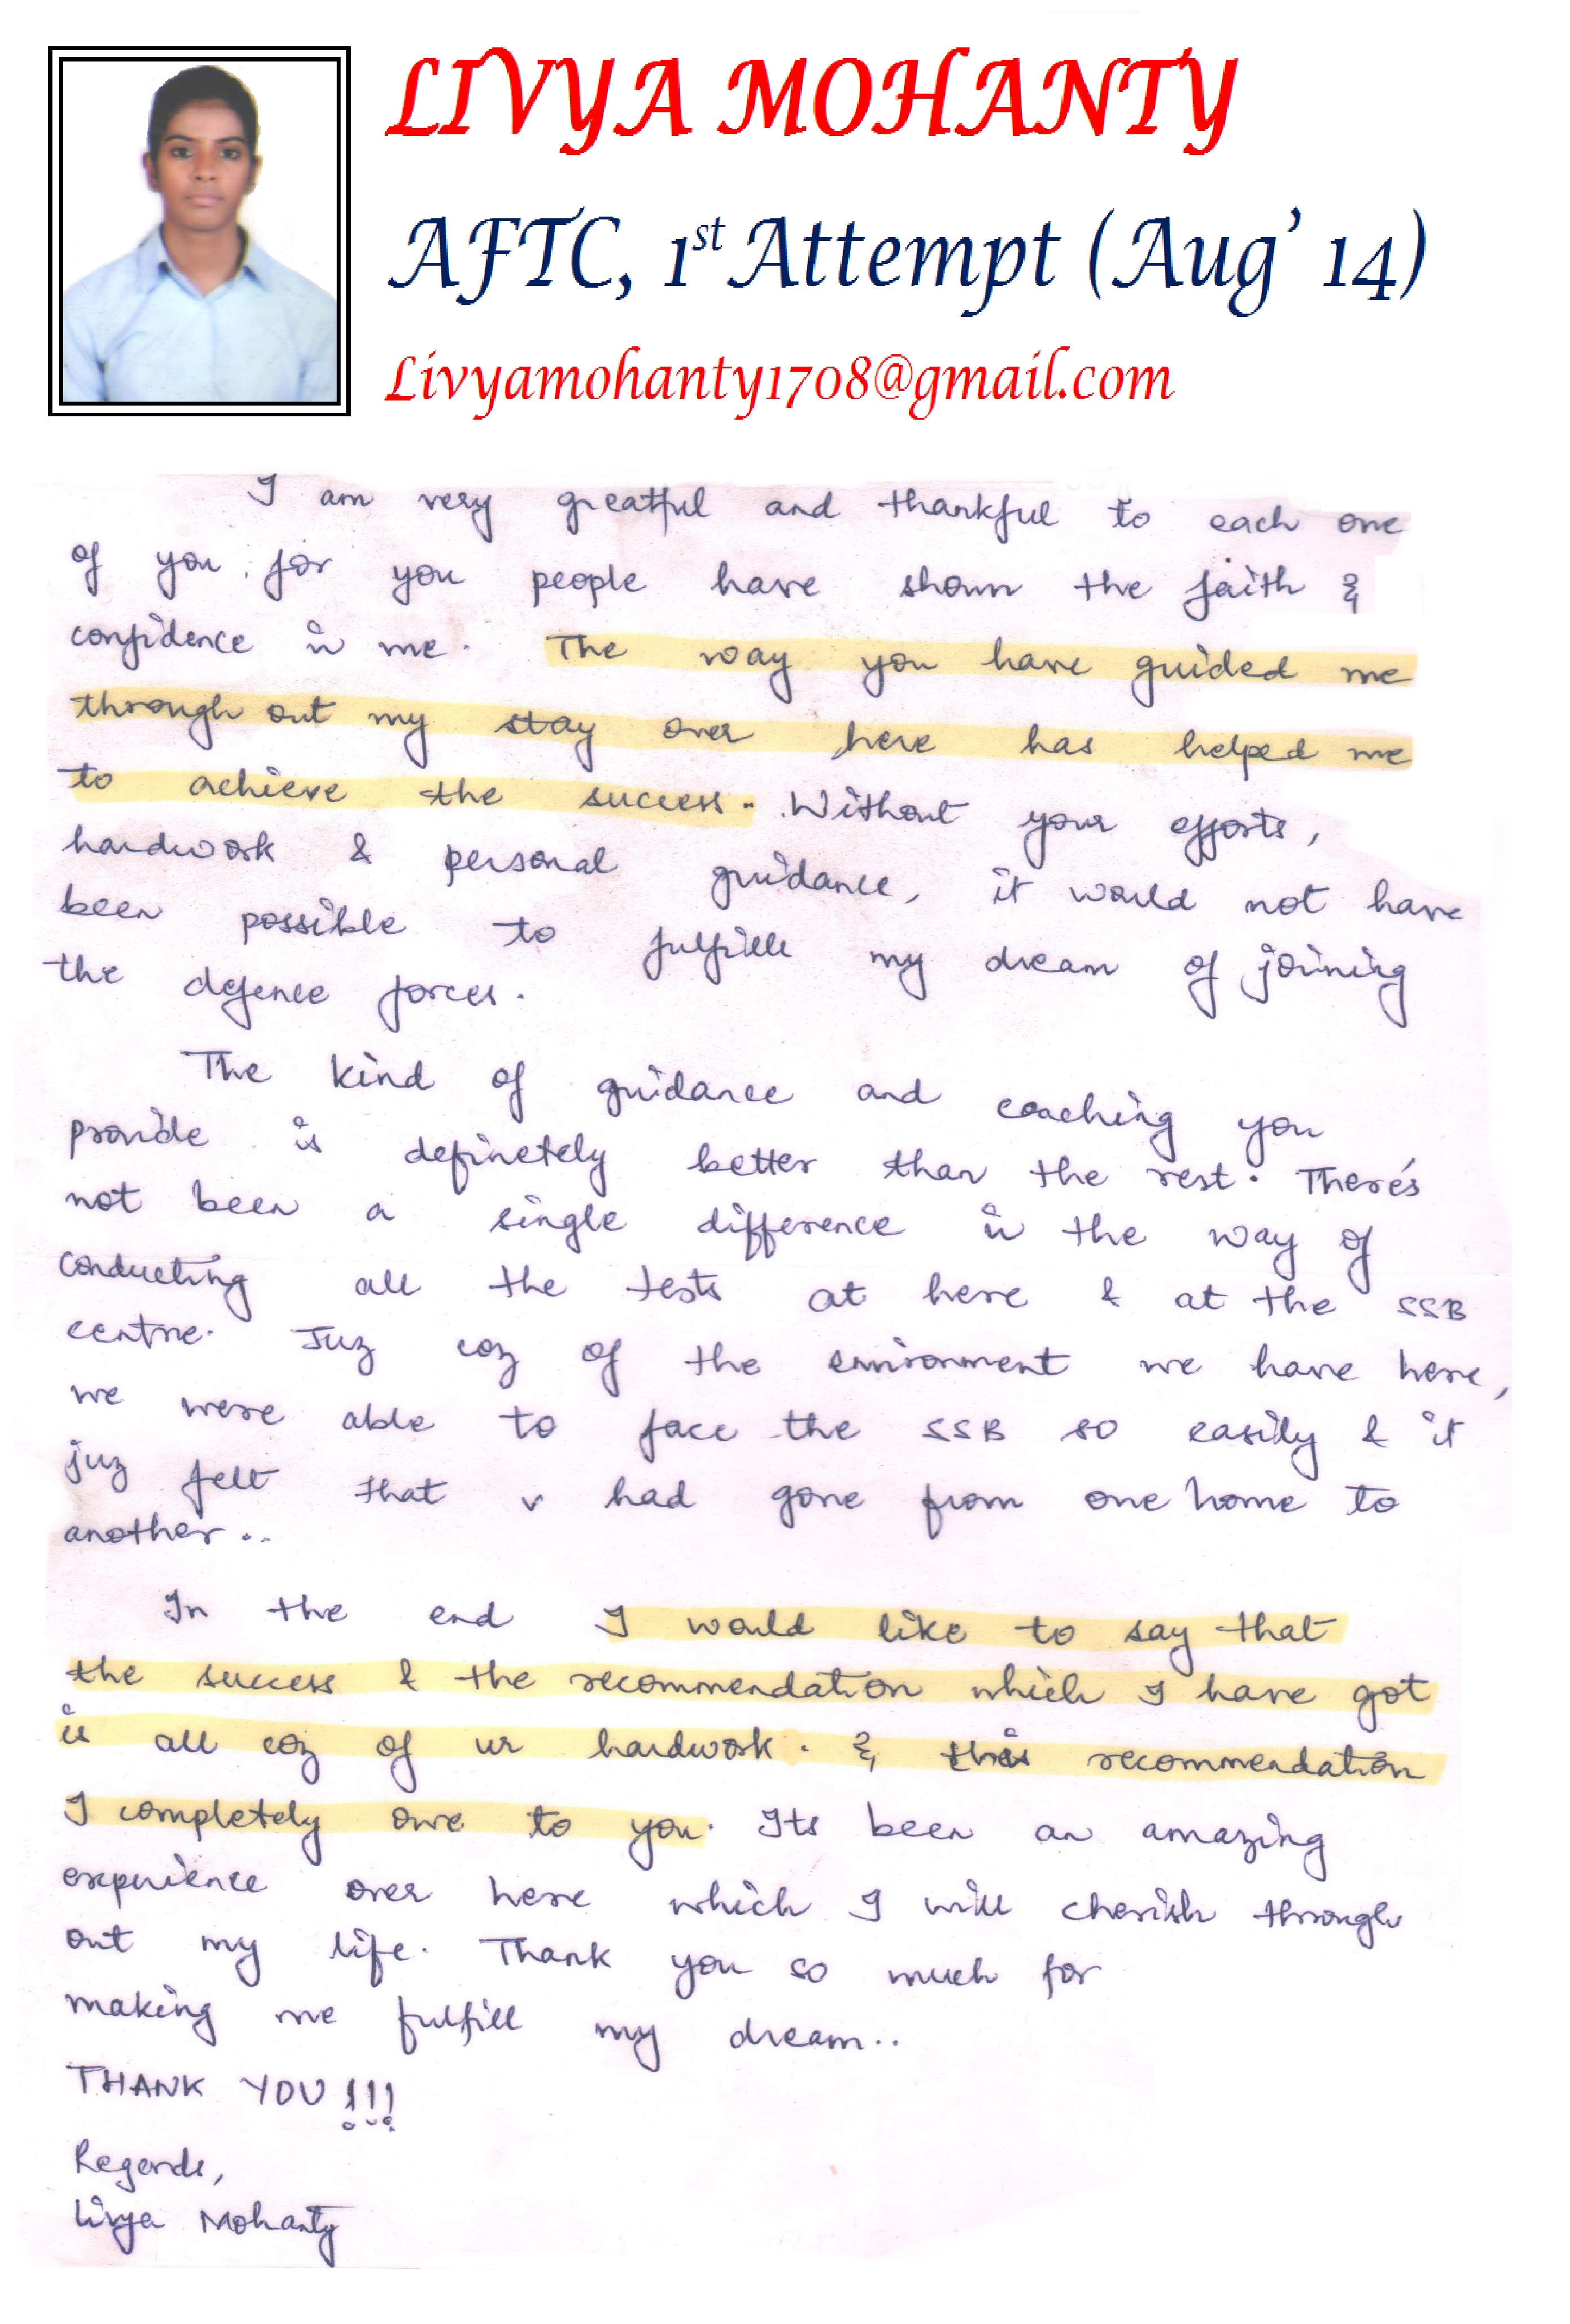 LIVYA MOHANTY
AFTC, 1st Attempt (Aug' 14)
Livyamohanty1708@gmail.com
I am very greatful and thankful to each one
of you for you people have shown the faith &
confidence in me. The way you have guided me
through out my stay over here has helped me
to achieve the success. Without your efforts,
hardwork & personal guidance, it would not have
been possible to fulfille my dream of joining
the defence forces.
The kind of guidance and coaching you
provide is definetely better than the rest. There's
not been a single difference in the way of
conducting all the tests at here & at the SSB
centre. Juz coz of the environment we have here,
we were able to face the SSB so easily & it
juz felt that v had gone from one home to
another..
In the end I would like to say that
the success & the recommendation which I have got
is all coz of ur hardwork. & this recommendation
I completely owe to you. Its been an amazing
experience over here which I will cherish through
out my life. Thank you so much for
making me fulfill my dream..
THANK YOU !!!
Regards,
Livya Mohanty